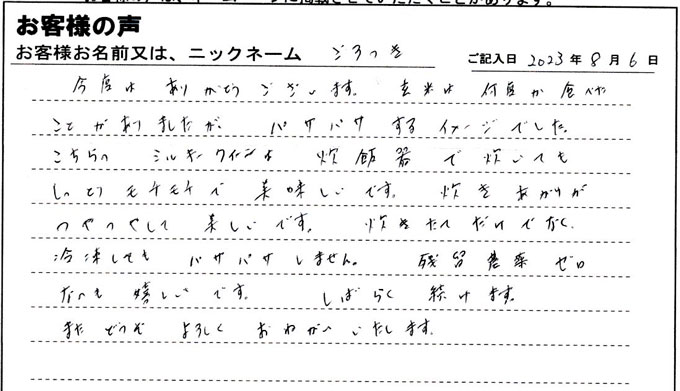 お客様の声
お客様お名前又は、ニックネーム ごろつき ご記入日 2023年8月6日
今度は ありがとうございます。 玄米は 何度か 食べた
ことがありましたが、 パサパサ する イメージ でした。
こちらの ミルキークイーンは 炊飯器 で 炊いても
しっとり モチモチで 美味しいです。 炊き あがりが
つやつやして 美しいです。 炊きたて だけでなく
冷凍しても パサパサ しません。 残留農薬 ゼロ
なのも 嬉しいです。 しばらく 続けます。
また どうぞ よろしく おねがい いたします。